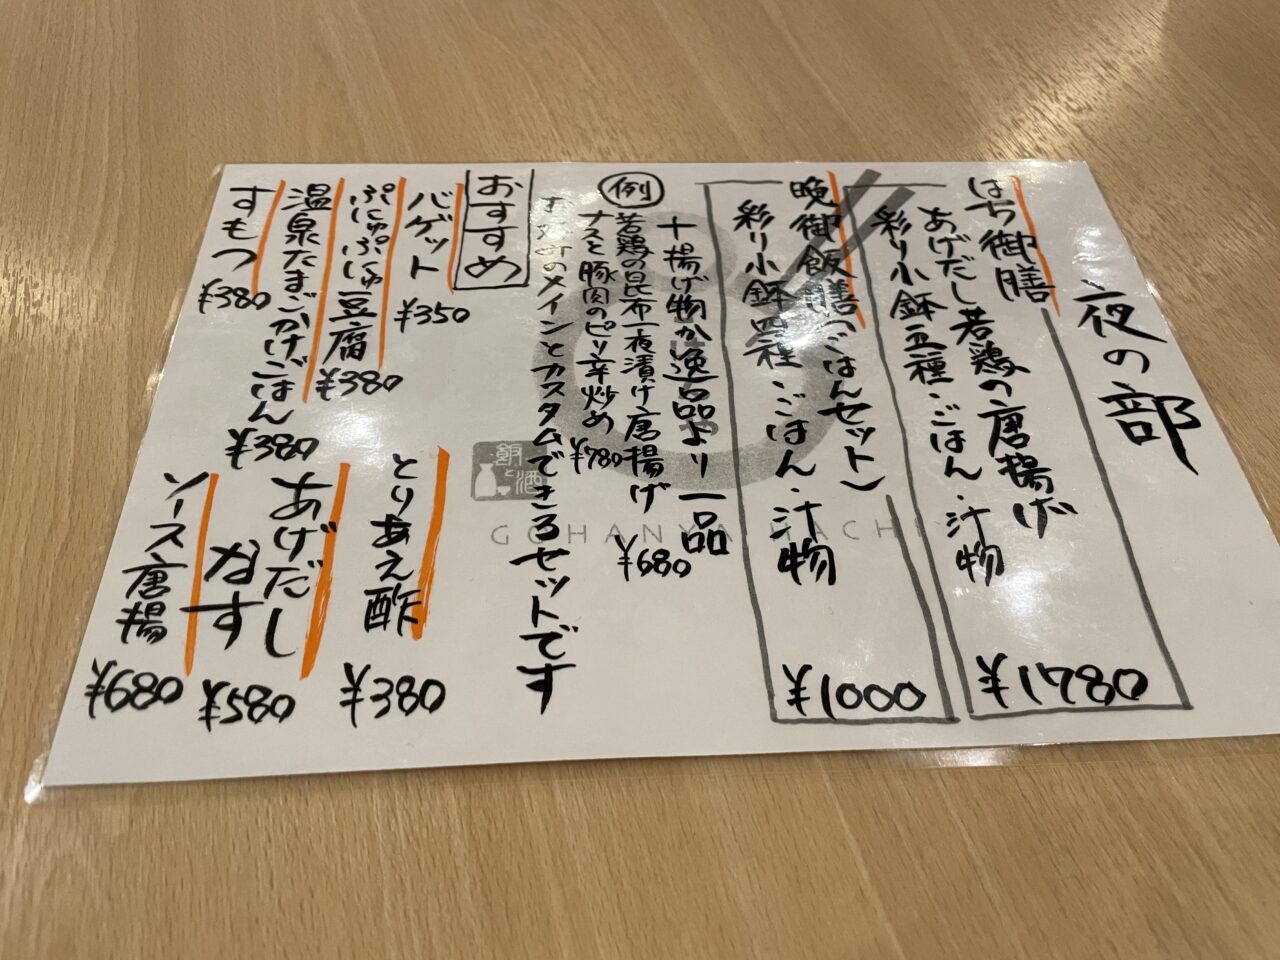 夜の部
はち御膳
あげだし若鶏の唐揚げ
彩り小鉢五種・ごはん・汁物
¥1780
晩御飯膳(ごはんセット)
彩り小鉢四種・ごはん・汁物
¥1000
十揚げ物か逸品より一品
例
若鶏の昆布一夜漬け唐揚げ
¥680
ナスと豚肉のピリ辛炒め
¥780
のメインとカスタムできるセットです
おすすめ
バゲット
¥350
ぷにゅぷにゅ豆腐
¥380
温泉たまごかけごはん
¥380
すもつ
¥380
とりあえ酢
¥380
あげだし
なす
¥580
ソース唐揚
¥680
飯と酒
GOHANYA HACHI